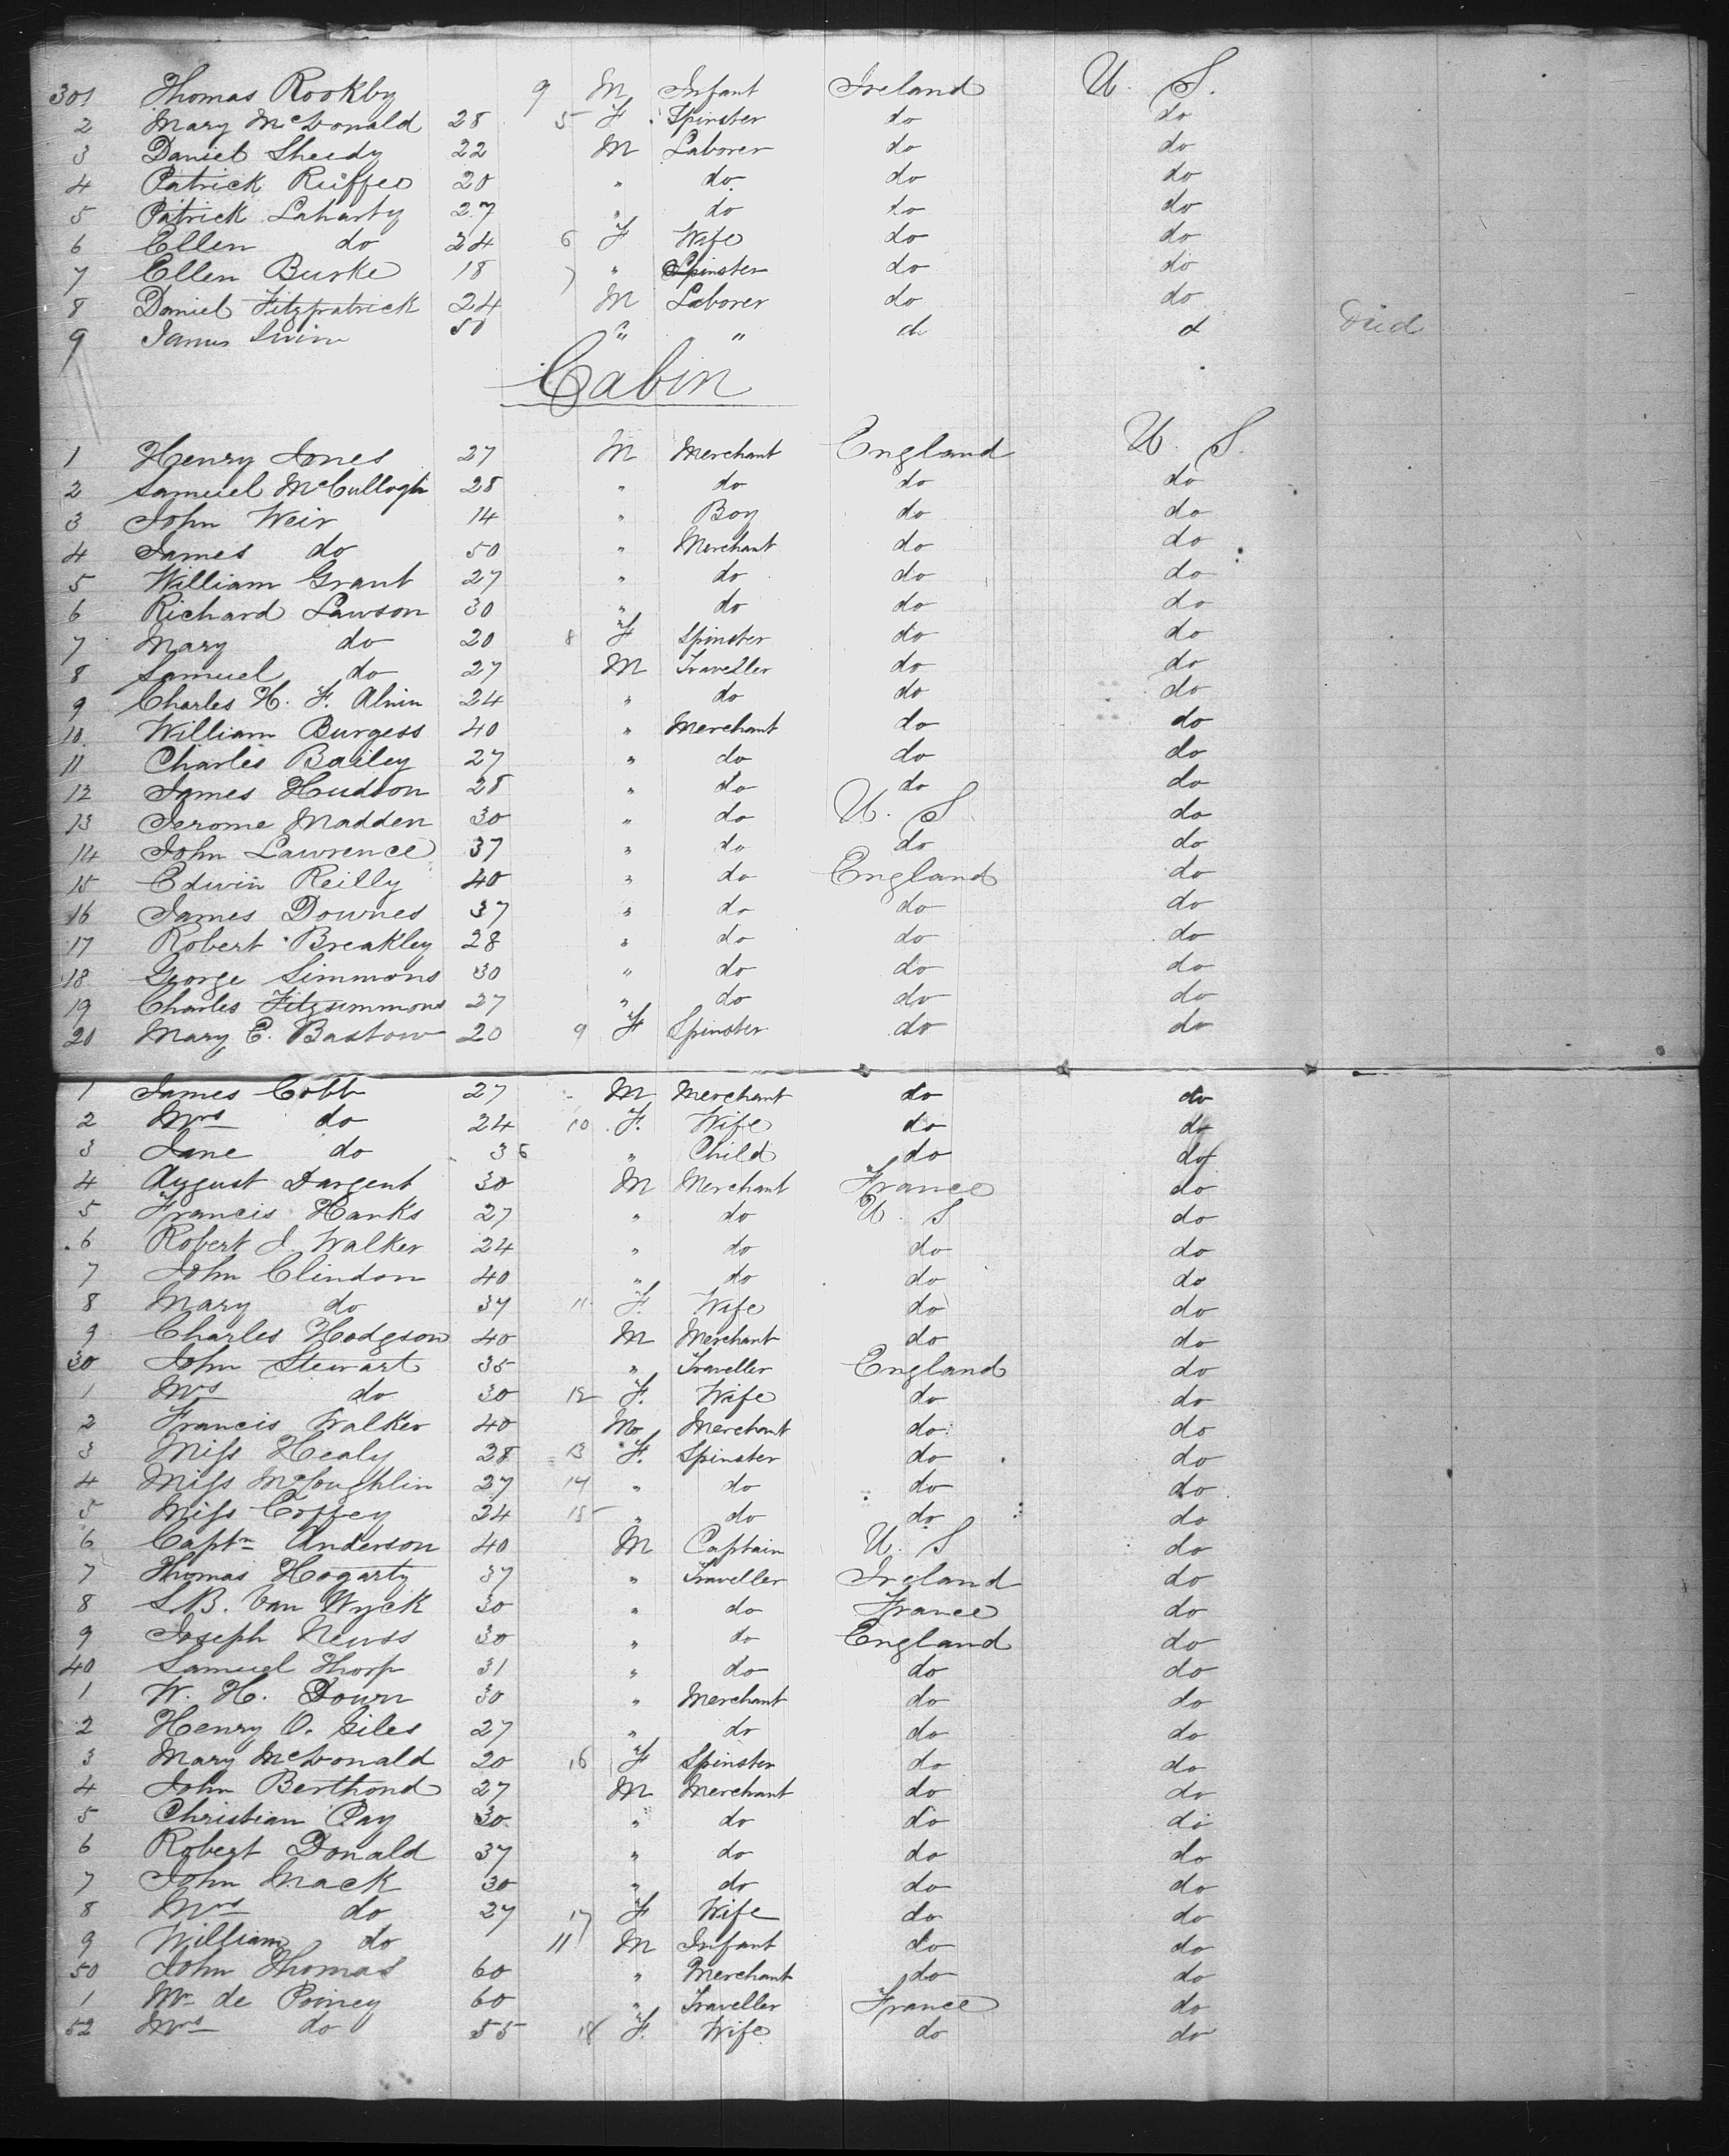 301 Thomas Rookby 9 M Infant Ireland U. S.
2 Mary McDonald 28 5 F Spinster do do
3 Daniel Sheedy 22 M Laborer do do
4 Patrick 20 " do do do
5 Patrick Laharty 27 " do do do
6 Ellen do 24 6 F Wife do do
7 Ellen Burke 18 7 " Spinster do do
8 Daniel Fitzpatrick 24 M Laborer do do
9 James 50 " " do d Died
Cabin
1 Henry Jones 27 M Merchant England U. S.
2 Samuel McCullogh 28 " do do do
3 John Weir 14 " Boy do do
4 James do 50 " Merchant do do
5 William Grant 27 " do do do
6 Richard Lawson 30 " do do do
7 Mary do 20 8 F Spinster do do
8 Samuel do 27 M Traveller do do
9 Charles H. F. 24 " do do do
10 William Burgess 40 " Merchant do do
11 Charles Bailey 27 " do do do
12 James Hudson 28 " do do do
13 Jerome Madden 30 " do U. S do
14 John Lawrence 37 " do do do
15 Edwin Reilly 40 " do England do
16 James Downes 37 " do do do
17 Robert Breakley 28 " do do do
18 George Simmons 30 " do do do
19 Charles Fitzsimmons 27 " do do do
20 Mary E. Bastow 20 9 F Spinster do do
1 James Cobb 27 M Merchant do do
2 Mrs do 24 10 F. Wife do do
3 Jane do 3 6 " Child do do
4 August Dargent 30 M Merchant France do
5 Francis Hanks 27 " do U. S do
6 Robert J. Walker 24 " do do do
7 John Clindon 40 " do do do
8 Mary do 37 11 F. Wife do do
9 Charles Hodgson 40 M Merchant do do
30 John Stewart 35 " Traveller England do
1 Mrs do 30 12 F. Wife do do
2 Francis Walker 40 M Merchant do do
3 Miss Healy 28 13 F. Spinster do do
4 Miss McLoughlin 27 14 " do do do
5 Miss Coffey 24 15 " do do do
6 Captn Anderson 40 M Captain U. S do
7 Thomas Hogarty 37 " Traveller Ireland do
8 S.B. Van Wyck 30 " do France do
9 Joseph Newss 30 " do England do
40 Samuel Thorp 31 " do do do
1 W. H. Down 30 " Merchant do do
2 Henry O. Giles 27 " do do do
3 Mary McDonald 20 16 F Spinster do do
4 John Berthond 27 M Merchant do do
5 Christian Pay 30 " do do do
6 Robert Donald 37 " do do do
7 John Mack 30 " do do do
8 Mrs do 27 17 F Wife do do
9 William do 11 M Infant do do
50 John Thomas 60 " Merchant do do
1 Mr de Poiney 60 " Traveller France do
52 Mrs do 55 18 F. Wife do do